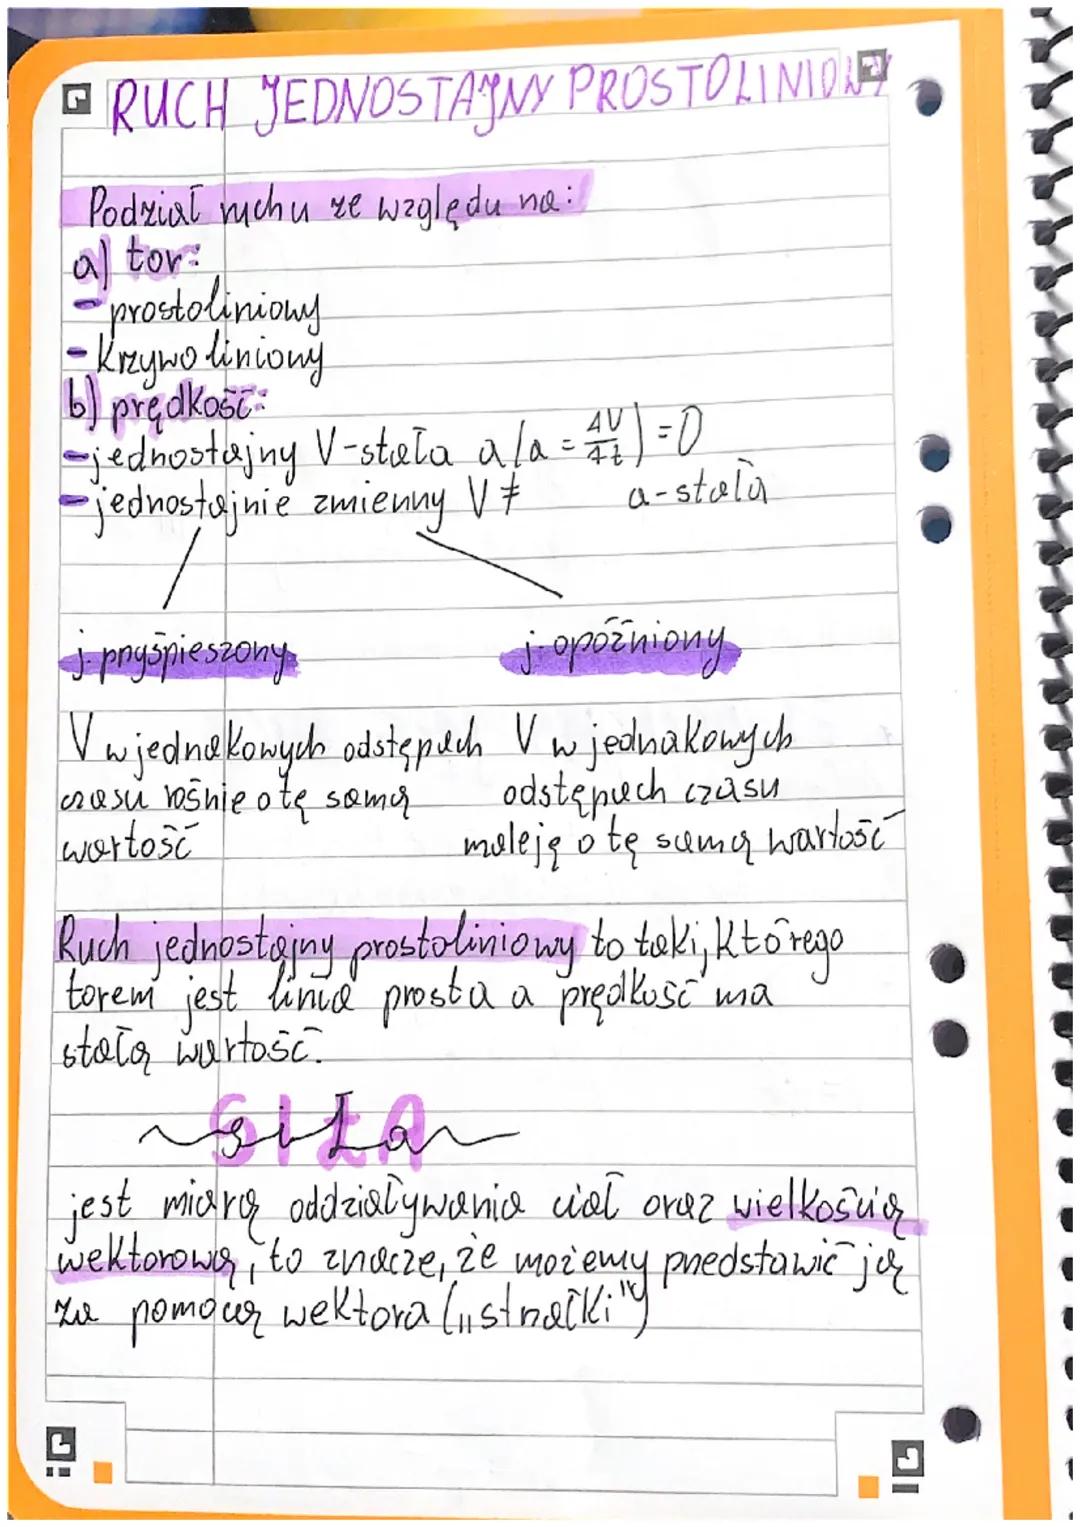 RUCH JEDNOSTAJNY PROSTOLINIOWY
Podział ruchu ze względu na:
a) tor:
- prostoliniowy
- Krzywoliniowy
b) prędkość:
- jednostajny V-stała a (a = ΔV/Δt) = 0
- jednostajnie zmienny V ≠ a-stała
j. przyśpieszony j. opóźniony
V w jednakowych odstępach
czasu rośnie o tę samą
wartość
V w jednakowych
odstępach czasu
maleję o tę samą wartość
Ruch jednostajny prostoliniowy to taki, którego
torem jest linia prosta a prędkość ma
stałą wartość.
SIŁA
siła
jest miarą oddziaływania ciał oraz wielkością
wektorową, to znacze, że możemy przedstawić ją
za pomocą wektora („strzałki")